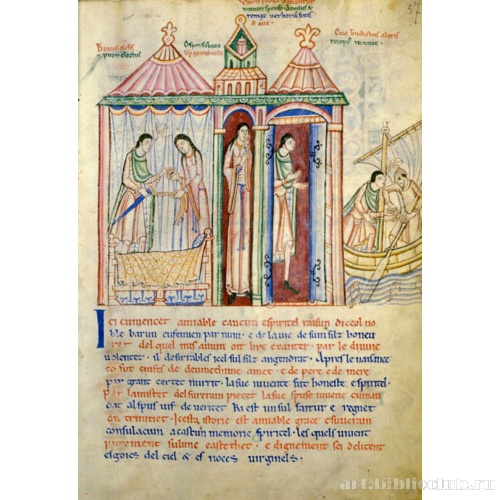 munera sponse Anulus &
renge verborum finis
& ave
Beatus alexis
puer electus
O sponsa beata
semp gemebunda
Ecce benedictus alexis
receptus in nave
57
Ici cumencet amiable cancun espiritel raisun diceol no
ble barun eufemien par num . e de la vie de sum filz boneu
ret del quel nus avum oit lire e canter . par le divine
volentet . il desirrables icel sul filz angendrat . Apres le naisance
co fut emfes de deu methime amet . e de pere e de mere
par grant certet nurrit . la sue iuvente fut honeste e spiritel .
Par lamistet del surerain pietet la sue spuse iuvene cuman
dat al spus vif de veritet Ki est un sul faitur e regnet
an trinitiet . Icesta istorie est amiable grace e suverain
consulaciun a cascun memorie spiritel . les quels vivent
purement sulunc castethet . e dignement sei delitent
es goies del ciel & es noces virginels .
art.biblioclub.ru